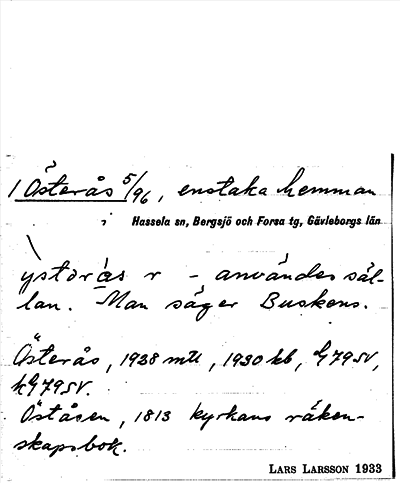 1 Österås 5/96, enstaka hemman
Hassela sn, Bergsjö och Forsa tg, Gävleborgs län
ystərås r – användes säl-
lan. Man säger Buskens.
Österås, 1928 mtl, 1930 kb, G79SV,
hG79SV.
Öståsen, 1813 kyrkans räken-
skapsbok.
LARS LARSSON 1933